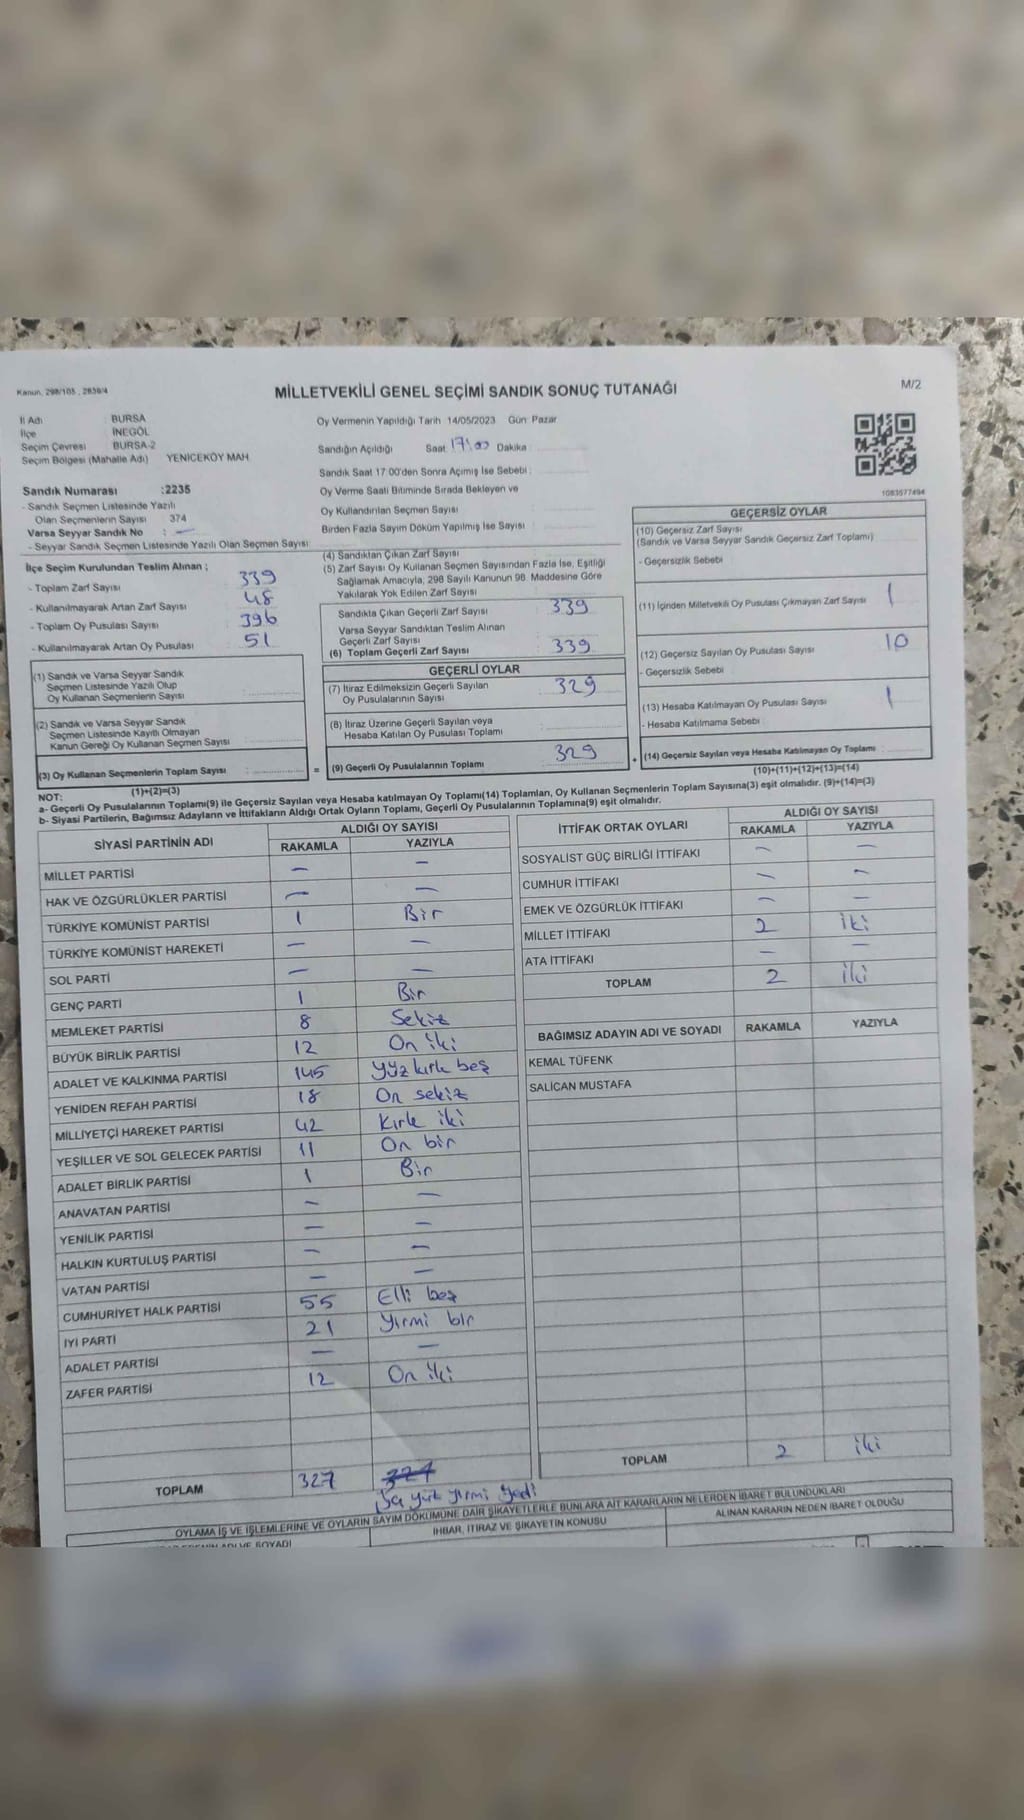 Kanun, 298/105, 2839/4
MİLLETVEKİLİ GENEL SEÇİMİ SANDIK SONUÇ TUTANAĞI
M/2
İl Adı : BURSA
İlçe : İNEGÖL
Seçim Çevresi : BURSA-2
Seçim Bölgesi (Mahalle Adı) YENICEKÖY MAH.
Oy Vermenin Yapıldığı Tarih 14/05/2023 Gün: Pazar
Sandığın Açıldığı Saat 17:00 Dakika :
Sandık Saat 17:00'den Sonra Açımış İse Sebebi :
Oy Verme Saati Bitiminde Sırada Bekleyen ve
Oy Kullandırılan Seçmen Sayısı
Birden Fazla Sayım Döküm Yapılmış İse Sayısı
1083577494
Sandık Numarası :2235
- Sandık Seçmen Listesinde Yazılı
Olan Seçmenlerin Sayısı : 374
Varsa Seyyar Sandık No : —
- Seyyar Sandık Seçmen Listesinde Yazılı Olan Seçmen Sayısı
İlçe Seçim Kurulundan Teslim Alınan ;
- Toplam Zarf Sayısı : 339
- Kullanılmayarak Artan Zarf Sayısı : 48
- Toplam Oy Pusulası Sayısı : 396
- Kullanılmayarak Artan Oy Pusulası : 51
(1) Sandık ve Varsa Seyyar Sandık
Seçmen Listesinde Yazılı Olup
Oy Kullanan Seçmenlerin Sayısı :
(2) Sandık ve Varsa Seyyar Sandık
Seçmen Listesinde Kayıtlı Olmayan
Kanun Gereği Oy Kullanan Seçmen Sayısı :
(3) Oy Kullanan Seçmenlerin Toplam Sayısı :
(1)+(2)=(3)
(4) Sandıktan Çıkan Zarf Sayısı
(5) Zarf Sayısı Oy Kullanan Seçmen Sayısından Fazla İse, Eşitliği
Sağlamak Amacıyla, 298 Sayılı Kanunun 98. Maddesine Göre
Yakılarak Yok Edilen Zarf Sayısı
Sandıkta Çıkan Geçerli Zarf Sayısı : 339
Varsa Seyyar Sandıktan Teslim Alınan
Geçerli Zarf Sayısı :
(6) Toplam Geçerli Zarf Sayısı : 339
GEÇERLİ OYLAR
(7) İtiraz Edilmeksizin Geçerli Sayılan
Oy Pusulalarının Sayısı : 329
(8) İtiraz Üzerine Geçerli Sayılan veya
Hesaba Katılan Oy Pusulası Toplamı :
= (9) Geçerli Oy Pusulalarının Toplamı : 329
GEÇERSİZ OYLAR
(10) Geçersiz Zarf Sayısı
(Sandık ve Varsa Seyyar Sandık Geçersiz Zarf Toplamı)
- Geçersizlik Sebebi
(11) İçinden Milletvekili Oy Pusulası Çıkmayan Zarf Sayısı : 1
(12) Geçersiz Sayılan Oy Pusulası Sayısı : 10
- Geçersizlik Sebebi :
(13) Hesaba Katılmayan Oy Pusulası Sayısı : 1
- Hesaba Katılmama Sebebi :
+ (14) Geçersiz Sayılan veya Hesaba Katılmayan Oy Toplamı :
(10)+(11)+(12)+(13)=(14)
NOT:
a- Geçerli Oy Pusulalarının Toplamı(9) ile Geçersiz Sayılan veya Hesaba katılmayan Oy Toplamı(14) Toplamları, Oy Kullanan Seçmenlerin Toplam Sayısına(3) eşit olmalıdır. (9)+(14)=(3)
b- Siyasi Partilerin, Bağımsız Adayların ve İttifakların Aldığı Ortak Oyların Toplamı, Geçerli Oy Pusulalarının Toplamına(9) eşit olmalıdır.
SİYASİ PARTİNİN ADI ALDIĞI OY SAYISI
RAKAMLA YAZIYLA
MİLLET PARTİSİ — —
HAK VE ÖZGÜRLÜKLER PARTİSİ — —
TÜRKİYE KOMÜNİST PARTİSİ 1 Bir
TÜRKİYE KOMÜNİST HAREKETİ — —
SOL PARTİ — —
GENÇ PARTİ 1 Bir
MEMLEKET PARTİSİ 8 Sekiz
BÜYÜK BİRLİK PARTİSİ 12 On iki
ADALET VE KALKINMA PARTİSİ 145 Yüz kırk beş
YENİDEN REFAH PARTİSİ 18 On sekiz
MİLLİYETÇİ HAREKET PARTİSİ 42 Kırk iki
YEŞİLLER VE SOL GELECEK PARTİSİ 11 On bir
ADALET BİRLİK PARTİSİ 1 Bir
ANAVATAN PARTİSİ — —
YENİLİK PARTİSİ — —
HALKIN KURTULUŞ PARTİSİ — —
VATAN PARTİSİ — —
CUMHURİYET HALK PARTİSİ 55 Elli beş
İYİ PARTİ 21 Yirmi bir
ADALET PARTİSİ — —
ZAFER PARTİSİ 12 On iki
TOPLAM 327
yüz yirmi yedi
İTTİFAK ORTAK OYLARI ALDIĞI OY SAYISI
RAKAMLA YAZIYLA
SOSYALİST GÜÇ BİRLİĞİ İTTİFAKI — —
CUMHUR İTTİFAKI — —
EMEK VE ÖZGÜRLÜK İTTİFAKI — —
MİLLET İTTİFAKI 2 iki
ATA İTTİFAKI — —
TOPLAM 2 iki
BAĞIMSIZ ADAYIN ADI VE SOYADI RAKAMLA YAZIYLA
KEMAL TÜFENK
SALİCAN MUSTAFA
TOPLAM 2 iki
OYLAMA İŞ VE İŞLEMLERİNE VE OYLARIN SAYIM DÖKÜMÜNE DAİR ŞİKAYETLERLE BUNLARA AİT KARARLARIN NELERDEN İBARET BULUNDUKLARI
İHBAR, İTİRAZ VE ŞİKAYETİN KONUSU
ALINAN KARARIN NEDEN İBARET OLDUĞU